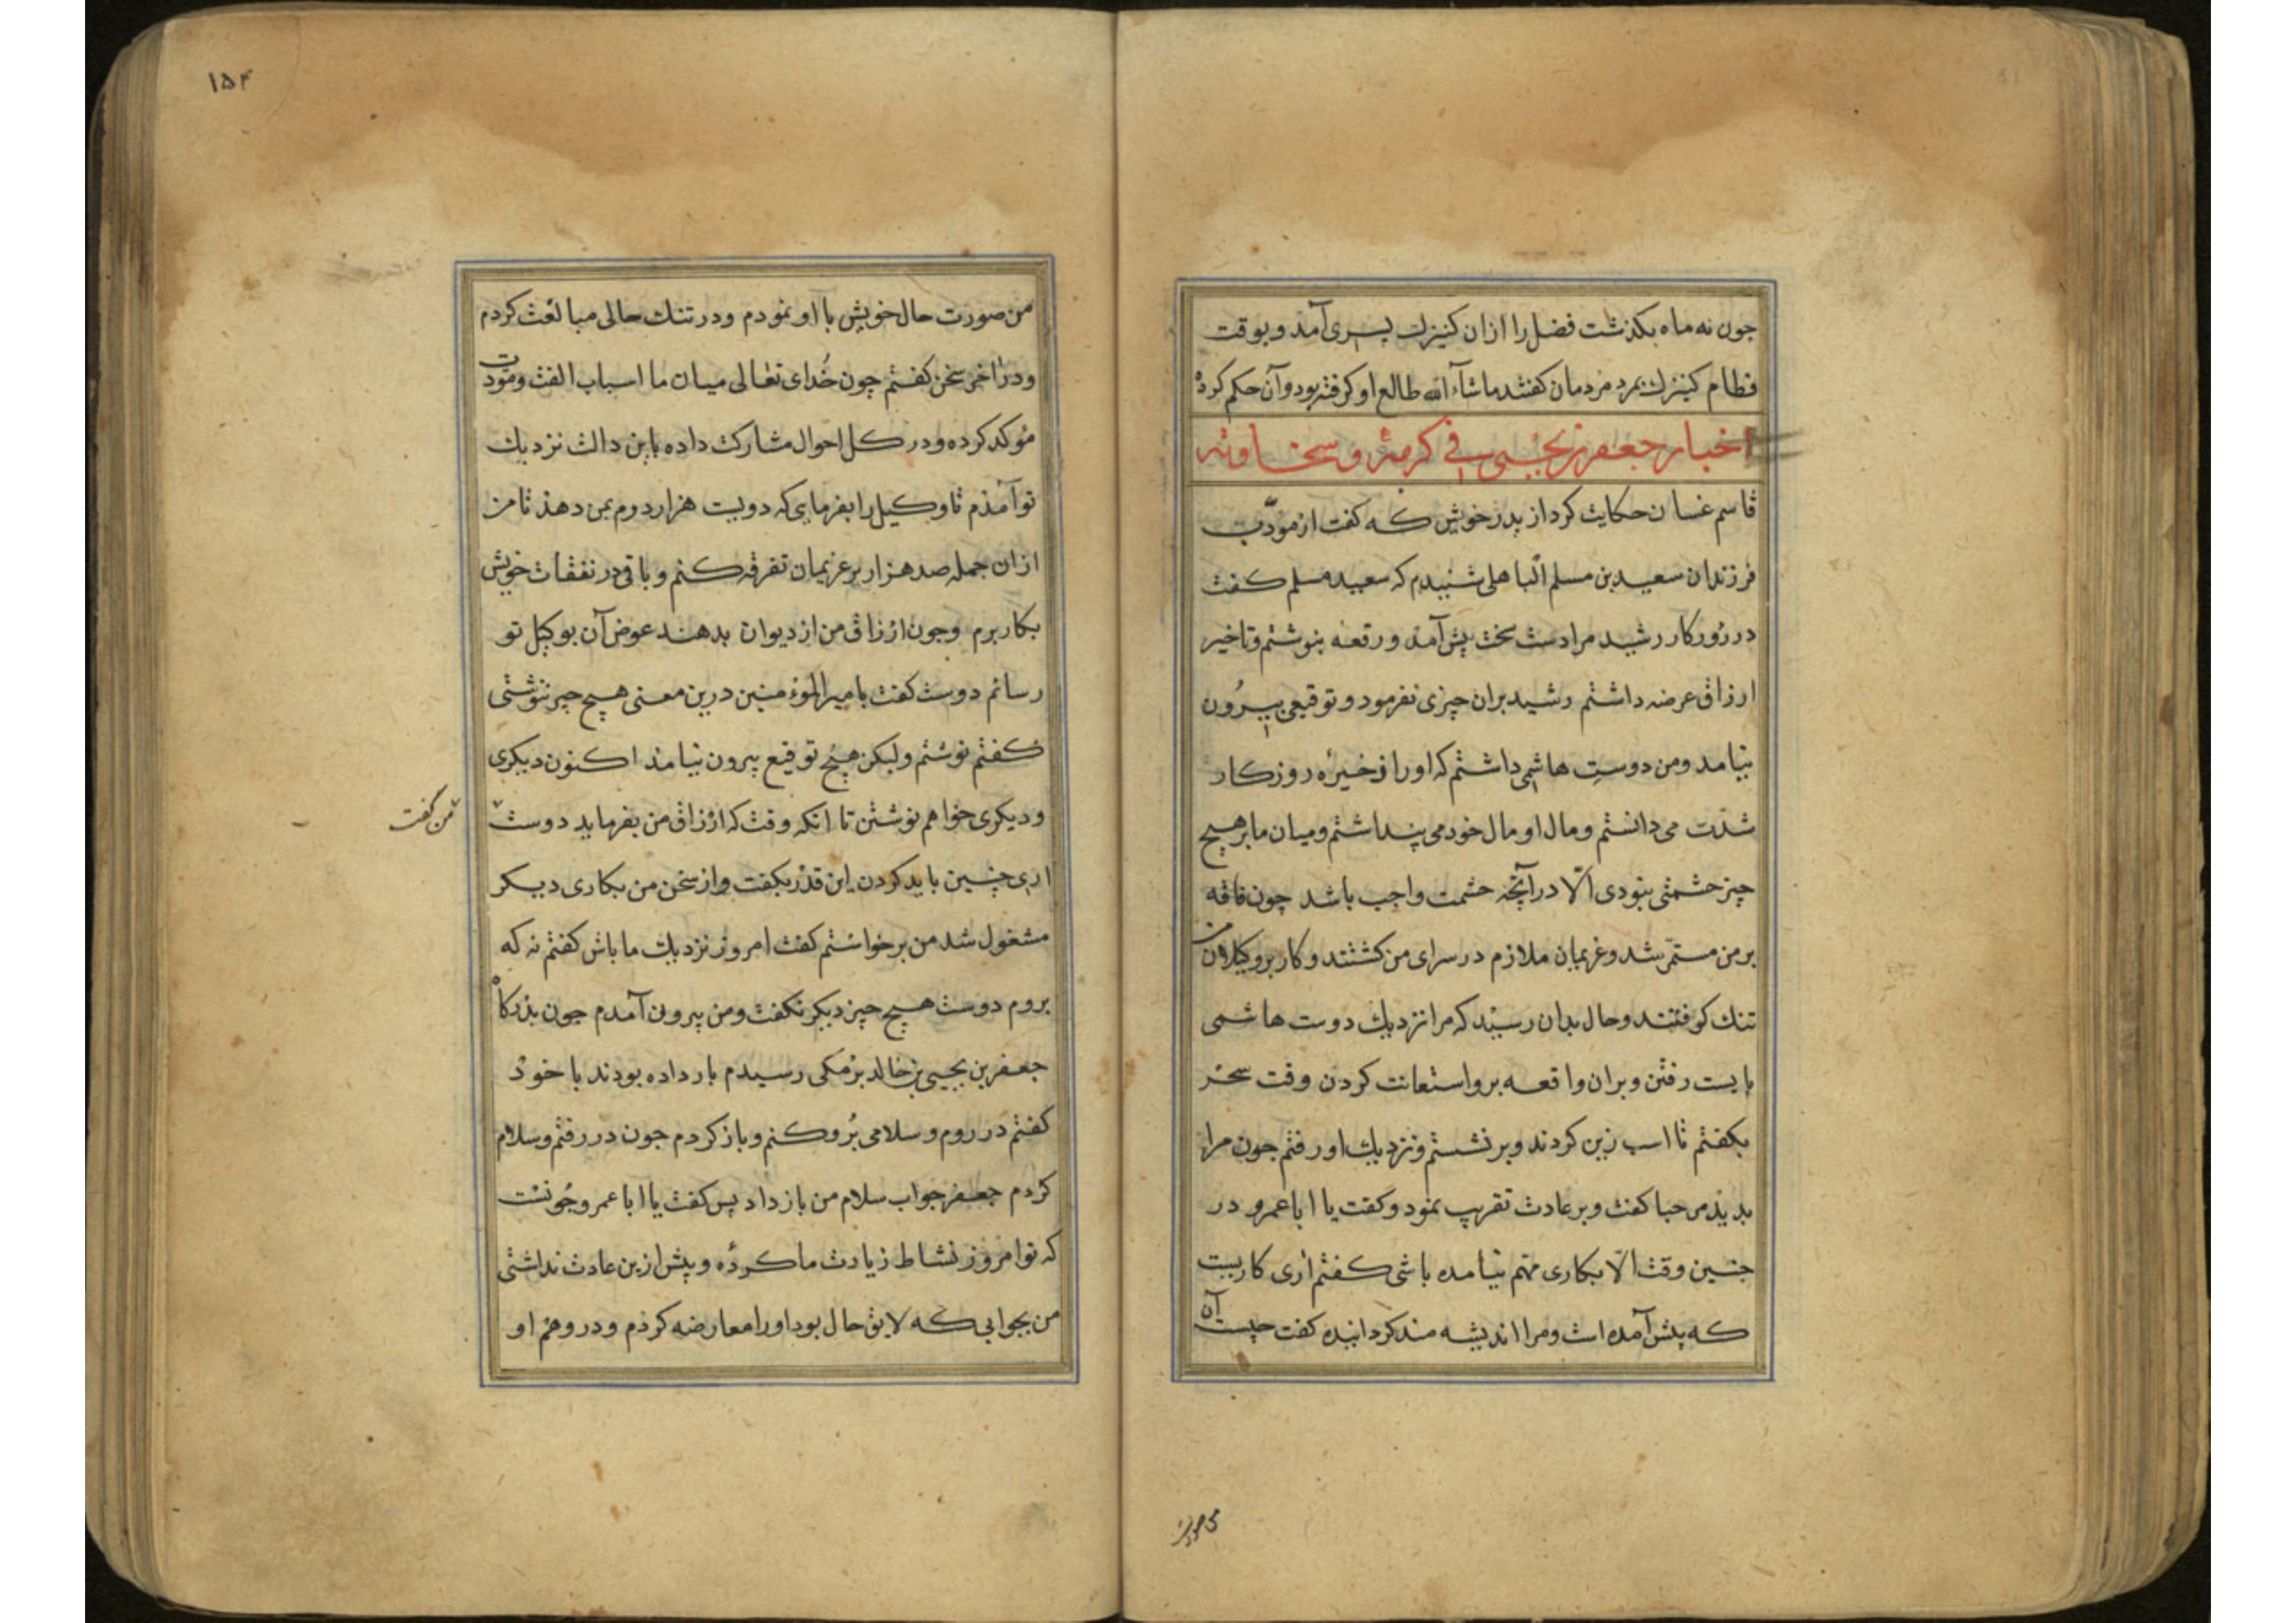 چون نه ماه بکذشت فضل را ازان کنیزك پسری آمد و بوقت
فطام کنیزك بمرد مردمان کفتند ماشآء الله طالع او کرفته بود وآن حکم کرده
اخبار جعفر بن یحیی فی کرمه و سخاوته
قاسم غسان حکایت کرد از پدر خویش که کفت از مودّب
فرزندان سعید بن مسلم الباهلی شنیدم که سعید مسلم کفت
در روزکار رشید مرا دست تنگی سخت پیش آمد و رقعه بنوشتم و تاخیر
ارزاق عرضه داشتم رشید بران چیزی نفرمود و توقیعی بیرون
نیامد ومن دوستِ هاشمی داشتم که او را ذخیرهٔ روزکار
شدّت می دانستم و مال او مال خود می پنداشتم ومیان ما بر هیچ
چیز حشمتی نبودی الّا در آنچه حشمت واجب باشد چون فاقه
بر من مستمرّ شد و غریمان ملازم در سرای من کشتند و کار بر وکیلان من
تنك کرفتند وحال بدان رسید که مرا نزدیك دوست هاشمی
بایست رفتن و بران واقعه برو استعانت کردن وقت سحر
بکفتم تا اسب زین کردند و بر نشستم و نزدیك او رفتم چون مرا
بدید مرحبا کفت و بر عادت تقریب نمود و کفت یا ابا عمرو در
چنین وقت الّا بکاری مهّم نیامده باشی کفتم اری کاریست
که پیش آمده است ومرا اندیشه مند کردانیده کفت چیست آن
من صورت
۱۵۴
من صورت حال خویش با او نمودم ودر تنك حالی مبالغت کردم
ودر اخر سخن کفتم چون خُدای تعالی میان ما اسباب الفت ومودّت
مُوکد کرده و در کل احوال مشارکت داده باین دالت نزدیك
تو آمذم تا وکیل را بفرمایی که دویست هزار درم بمن دهذ تا من
ازان جمله صد هزار بر غریمان تفرقه کنم و باقی در نفقات خویش
بکار برم وچون ارزاق من از دیوان بدهند عوض آن بوکیل تو
رسانم دوست کفت بامیر الموءمنین درین معنی هیچ چیز ننوشتی
کفتم نوشتم ولیکن هیچ توقیع بیرون نیامذ اکنون دیکری
ودیکری خواهم نوشتن تا انکه وقت که ارزاق من بفرماید دوست
من کفت
اری چنین باید کردن این قدر بکفت واز سخن من بکاری دیکر
مشغول شد من برخواستم کفت امروز نزدیك ما باش کفتم نه که
بروم دوست هیچ چیز دیکر نکفت ومن بیرون آمدم چون بدرکاه
جعفر بن یحیی بن خالد برمکی رسیدم بار داده بودند با خود
کفتم در روم و سلامی بُرو کنم وباز کردم چون در رفتم وسلام
کردم جعفر جواب سلام من باز داد پس کفت یا ابا عمرو چونست
که تو امروز نشاط زیارت ما کردهٔ و پیش ازین عادت نداشتی
من بجوابی که لایق حال بود اورا معارضه کردم ودر وهم او